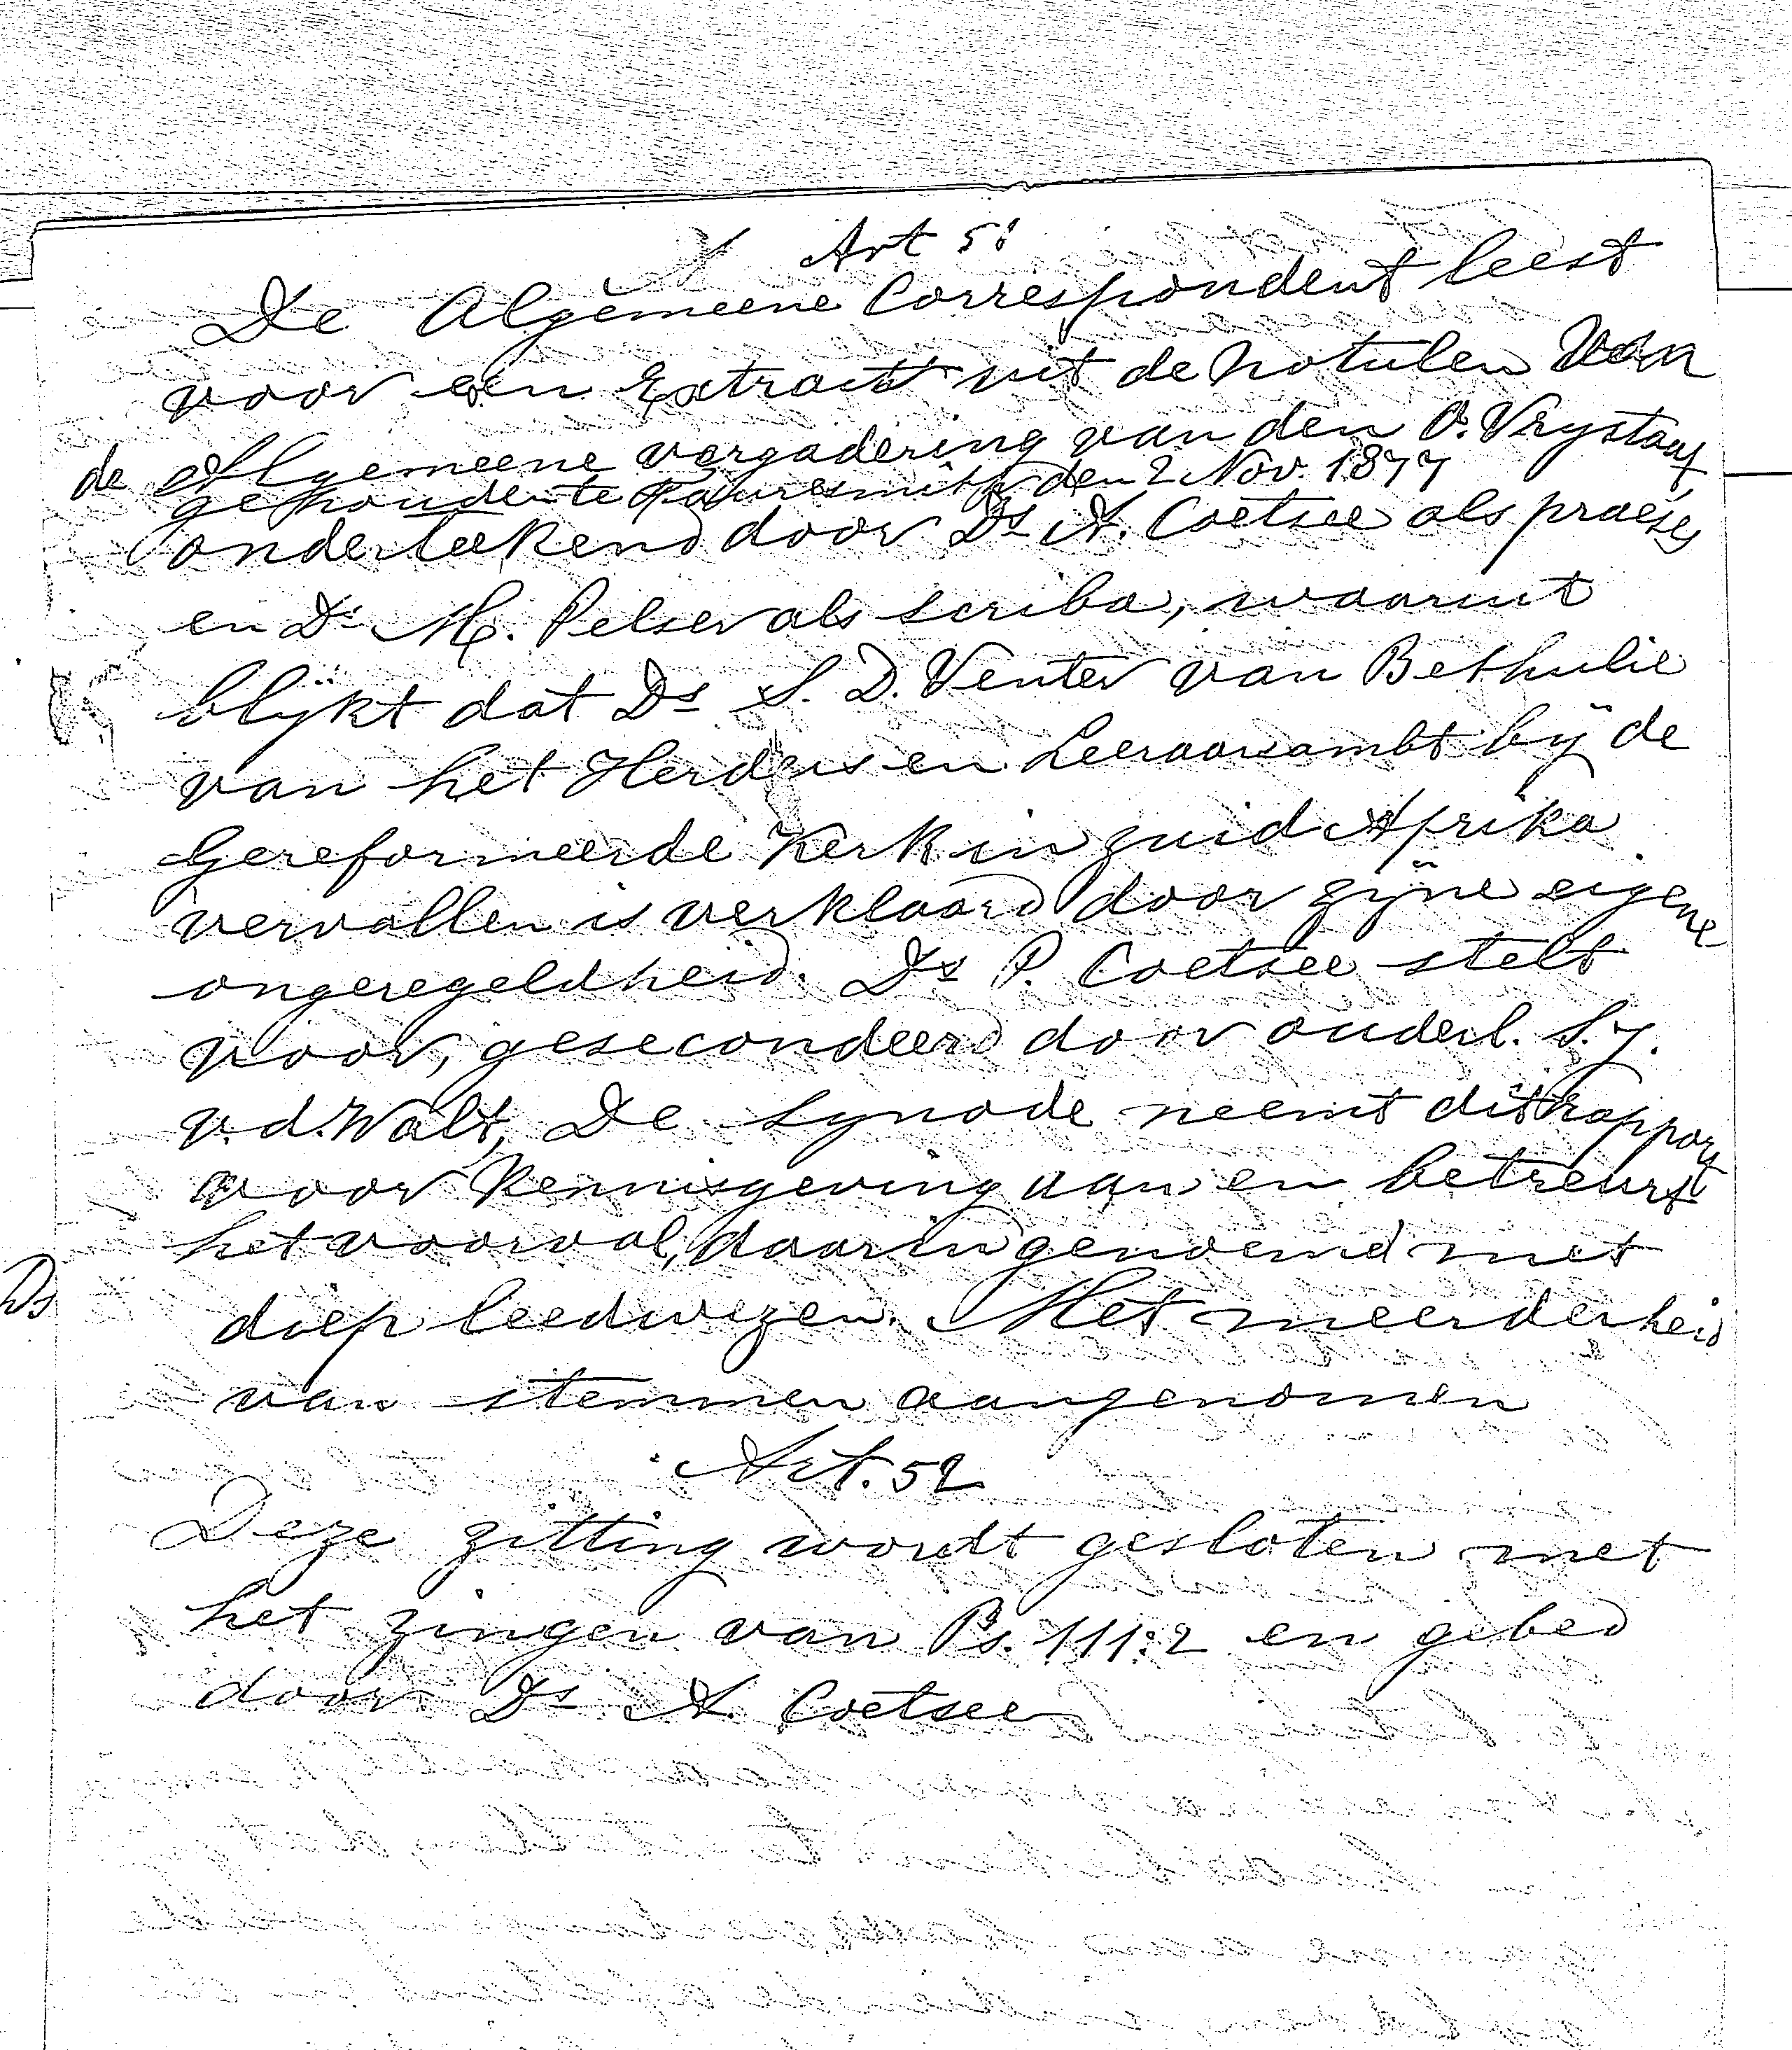 Art 51
De Algemeene Correspondent leest
voor een Extract uit de Notulen van
de Algemeene vergadering van den O. Vrystaat
gehouden te Fauresmith den 2 Nov. 1877
onderteekend door Ds A. Coetsee als praeses
en Ds M. Pelser als scriba, waaruit
blÿkt dat Ds S. D. Venter van Bethulie
van het Herders en Leeraarsambt bÿ de
Gereformeerde Kerk in zuid Afrika
vervallen is verklaard door zÿne eigene
ongeregeldheid. Ds P. Coetsee stelt
voor, gesecondeerd door ouderl. S. J.
v. d. Walt, De Synode neemt dit Rapport
voor kennisgeving aan en betreurt
het voorval, daarin genoemd met
diep leedwezen. Met meerderheid
van stemmen aangenomen
Art. 52
Deze zitting wordt gesloten met
het zingen van Ps. 111:2 en gebed
door Ds A. Coetsee
Ds